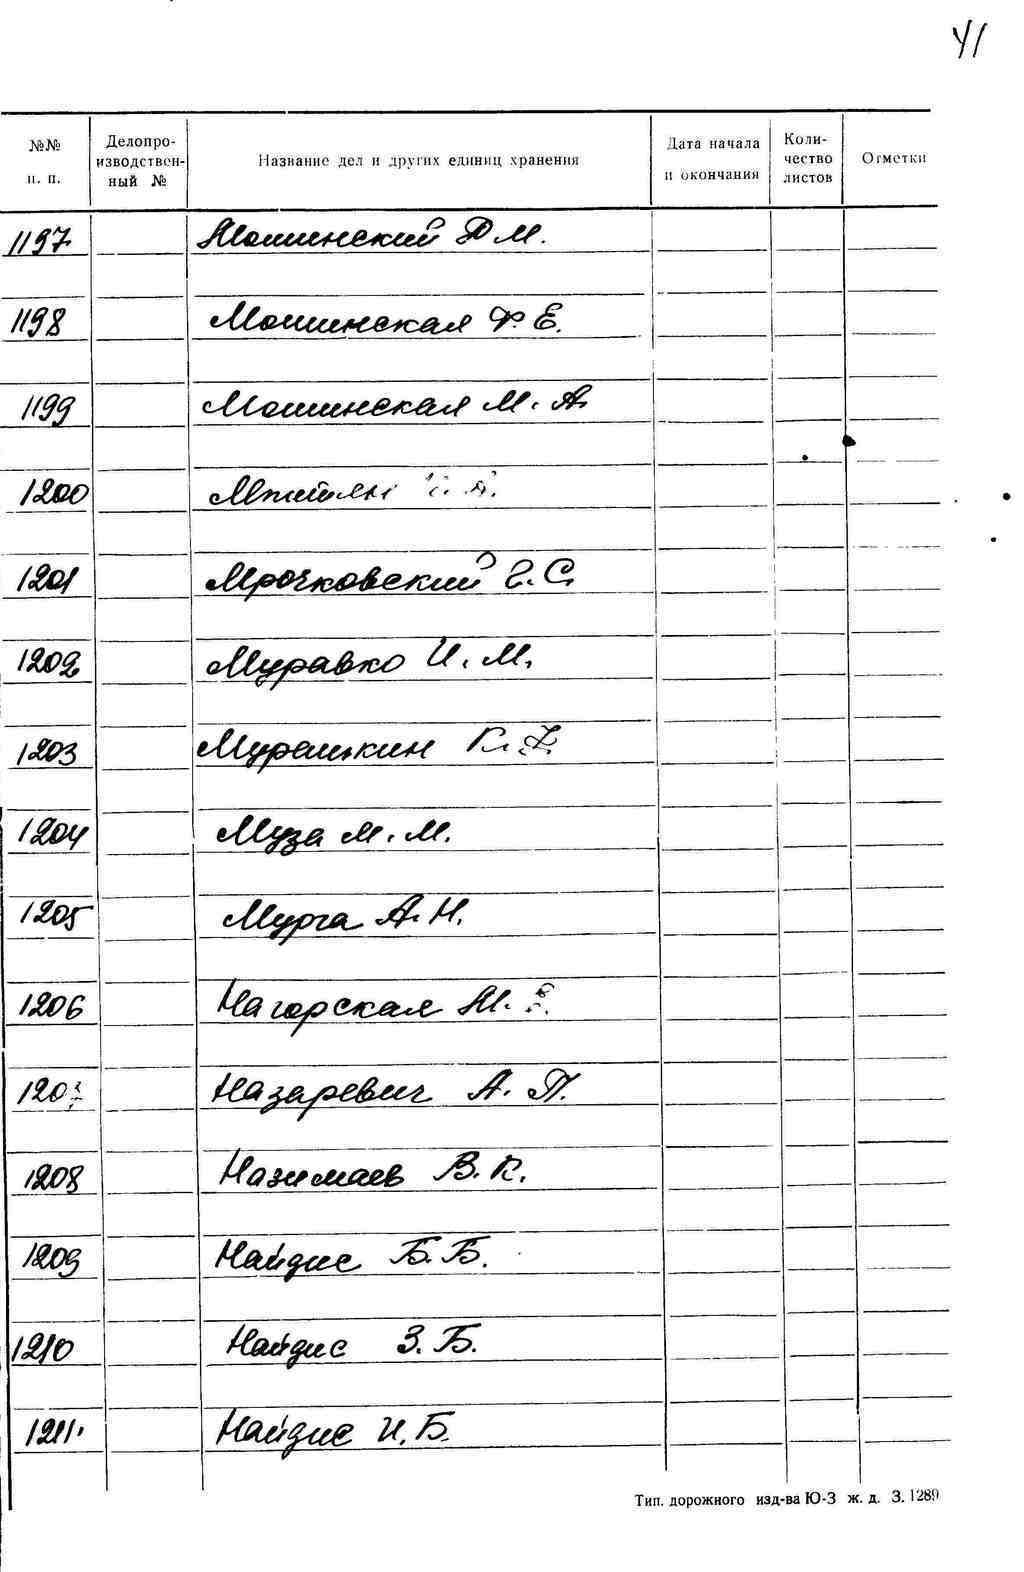 41
№№ п. п. Делопроизводствен-ный № Название дел и других единиц хранения Дата начала и окончания Коли-чество листов Отметки
1197 Мошинский Д М.
1198 Мошинская Ф. Е.
1199 Мошинская М. А.
1200
1201 Мрочковский Е. С.
1202 Муравко И. М.
1203 Мурашкин К.
1204 Муза М. М.
1205 Мурга А. Н.
1206 Нагорская М.
1207 Назаревич А. П.
1208 Назимаев В. К.
1209 Найдис Б. Б.
1210 Найдис З. Б.
1211 Найдис И. Б.
Тип. дорожного изд-ва Ю-З ж. д. З. 1289